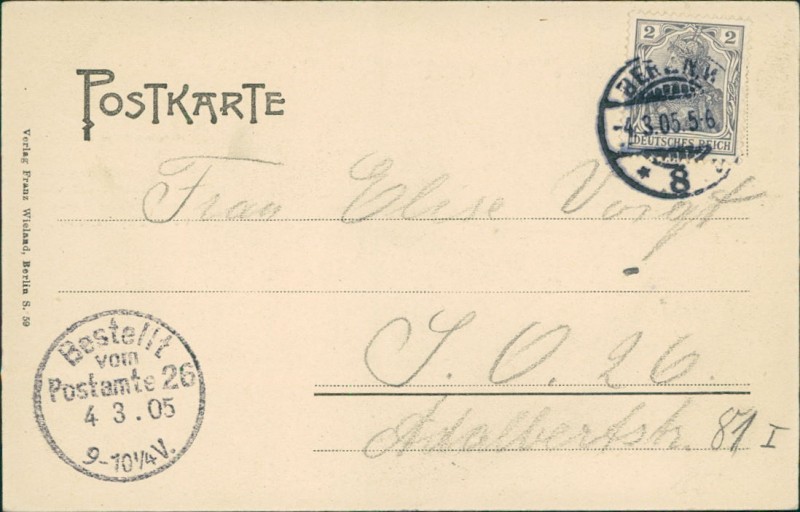 POSTKARTE
2 2
DEUTSCHES REICH
BERLIN
4.3.05.5-6
* 8
Frau Elise Voigt
S. O. 26.
Adalbertstr. 81 I
Bestellt
vom
Postamte 26
4 3.05
9-10¼V.
Verlag Franz Wieland, Berlin S. 59